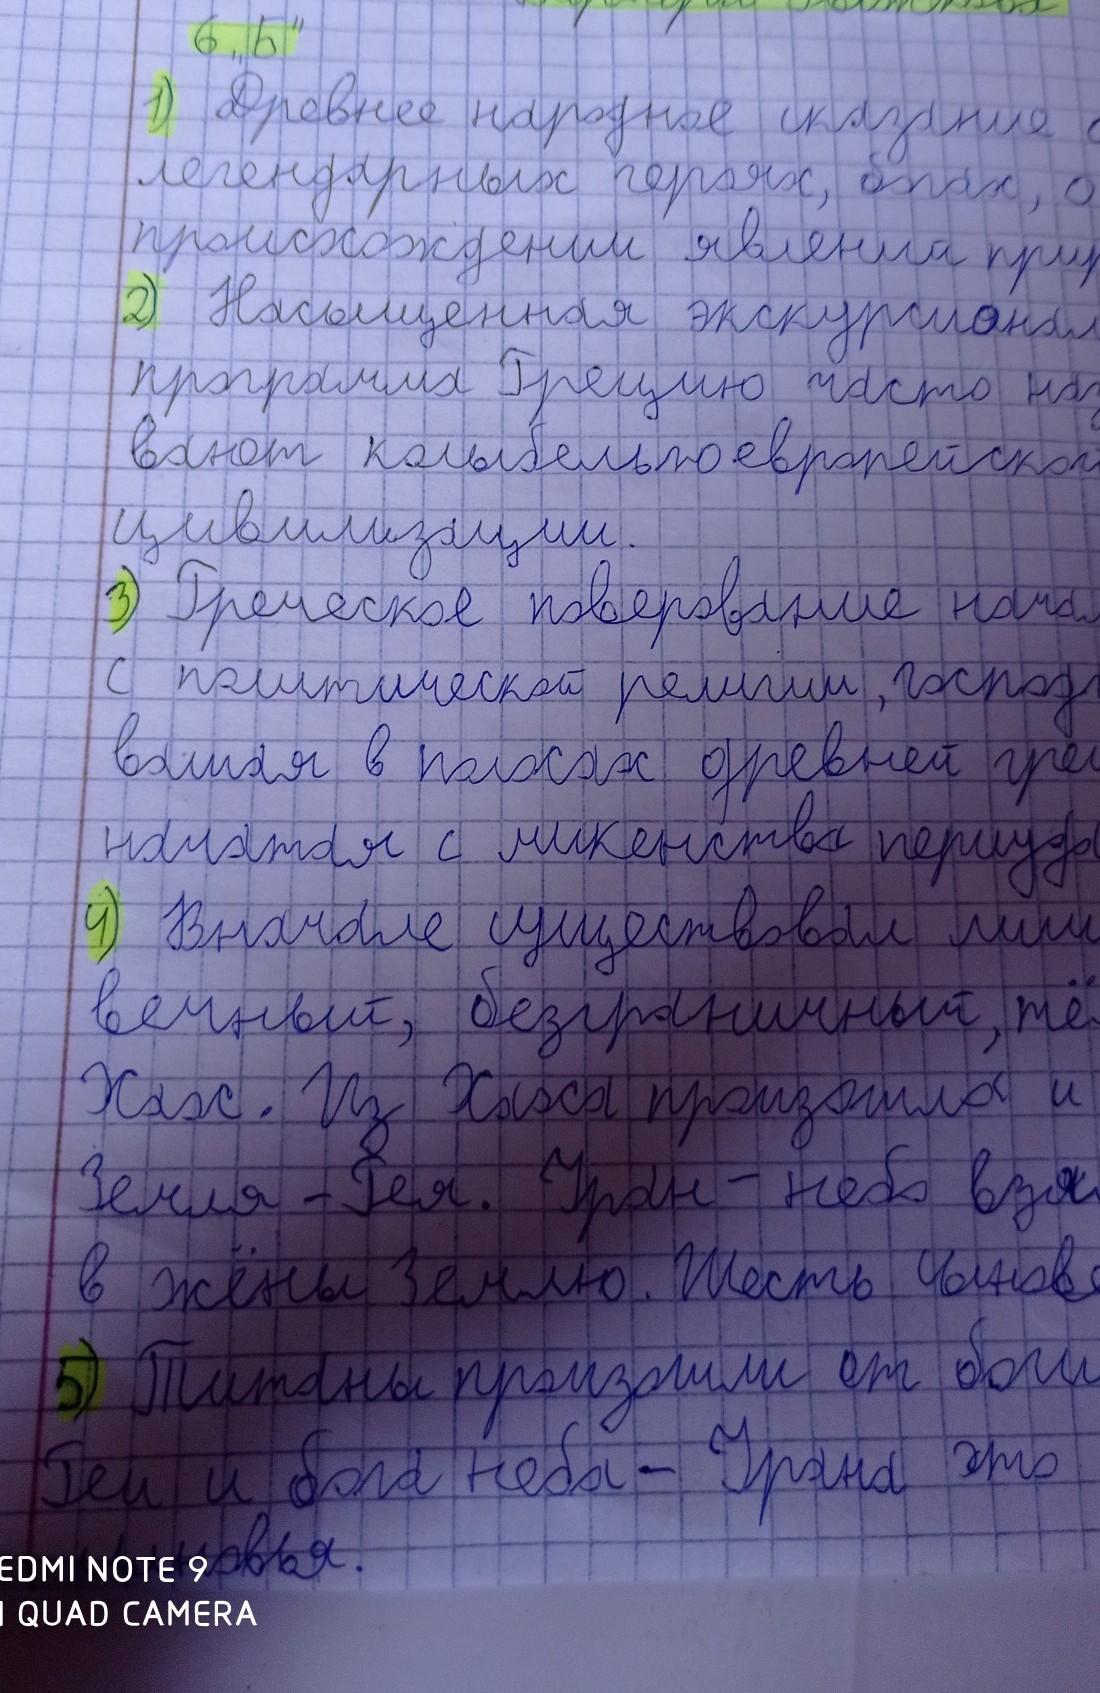 6 „Б"
1) Древнее народное сказание о
легендарных героях, богах, о
происхождении явлений прир
2) Насыщенная экскурсионал
программа Грецию часто наз
вают колыбелью европейской
цивилизации.
3) Греческое поверование нача
с политической религии, господ
вашая в полосах древней гре
начатая с микенства периуда
4) Вначале существовал лиш
вечный, безграничный, тё
Хаос. Из Хаоса произошла и
Земля - Гея. Уран - небо взя
в жёны Землю. Шесть сынове
5) Титаны произошли от боги
Геи и бога неба - Урана это
сыновья.
REDMI NOTE 9
AI QUAD CAMERA